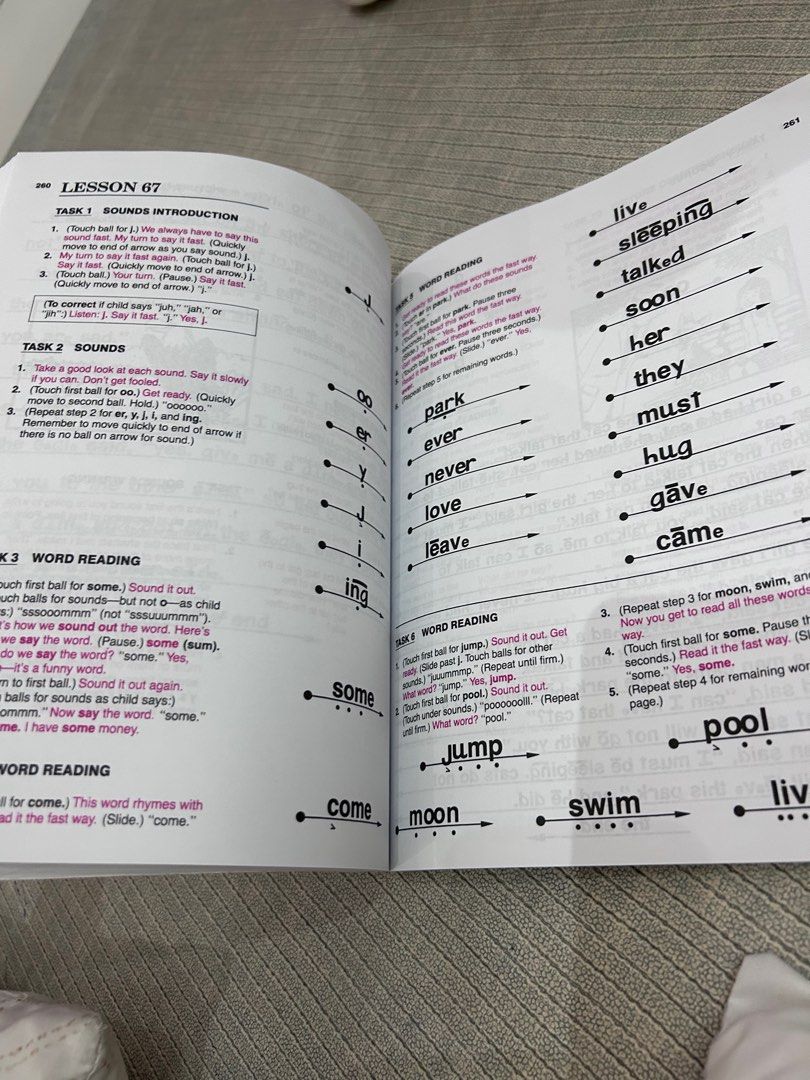 260 LESSON 67
TASK 1 SOUNDS INTRODUCTION
1. (Touch ball for j.) We always have to say this
sound fast. My turn to say it fast. (Quickly
move to end of arrow as you say sound.) j.
2. My turn to say it fast again. (Touch ball for j.)
Say it fast. (Quickly move to end of arrow.) j.
3. (Touch ball.) Your turn. (Pause.) Say it fast.
(Quickly move to end of arrow.) "j."
j
(To correct if child says "juh," "jah," or
"jih":) Listen: j. Say it fast. "j." Yes, j.
TASK 2 SOUNDS
1. Take a good look at each sound. Say it slowly
if you can. Don't get fooled.
2. (Touch first ball for oo.) Get ready. (Quickly
move to second ball. Hold.) "oooooo."
3. (Repeat step 2 for er, y, j, i, and ing.
Remember to move quickly to end of arrow if
there is no ball on arrow for sound.)
oo
er
y
j
i
ing
K 3 WORD READING
ouch first ball for some.) Sound it out.
uch balls for sounds—but not o—as child
s:) "sssooommm" (not "sssuuummm").
t's how we sound out the word. Here's
we say the word. (Pause.) some (sum).
do we say the word? "some." Yes,
—it's a funny word.
rn to first ball.) Sound it out again.
balls for sounds as child says:)
ommm." Now say the word. "some."
me. I have some money.
some
WORD READING
ll for come.) This word rhymes with
ad it the fast way. (Slide.) "come."
come
261
TASK 5 WORD READING
Get ready to read these words the fast way.
ar in park.) What do these sounds
(Touch first ball for park. Pause three
seconds.) Read this word the fast way.
(Slide.) "park." Yes, park.
Get ready to read these words the fast way.
(Touch ball for ever. Pause three seconds.)
Read it the fast way. (Slide.) "ever." Yes,
ever.
(Repeat step 5 for remaining words.)
park
ever
never
love
lēave
live
slēēping
talked
soon
her
they
must
hug
gāve
cāme
TASK 6 WORD READING
1. (Touch first ball for jump.) Sound it out. Get
ready. (Slide past j. Touch balls for other
sounds.) "juuummmp." (Repeat until firm.)
What word? "jump." Yes, jump.
2. (Touch first ball for pool.) Sound it out.
(Touch under sounds.) "poooooolll." (Repeat
until firm.) What word? "pool."
3. (Repeat step 3 for moon, swim, and
Now you get to read all these words
way.
4. (Touch first ball for some. Pause th
seconds.) Read it the fast way. (Sli
"some." Yes, some.
5. (Repeat step 4 for remaining wor
page.)
jump
pool
moon
swim
liv